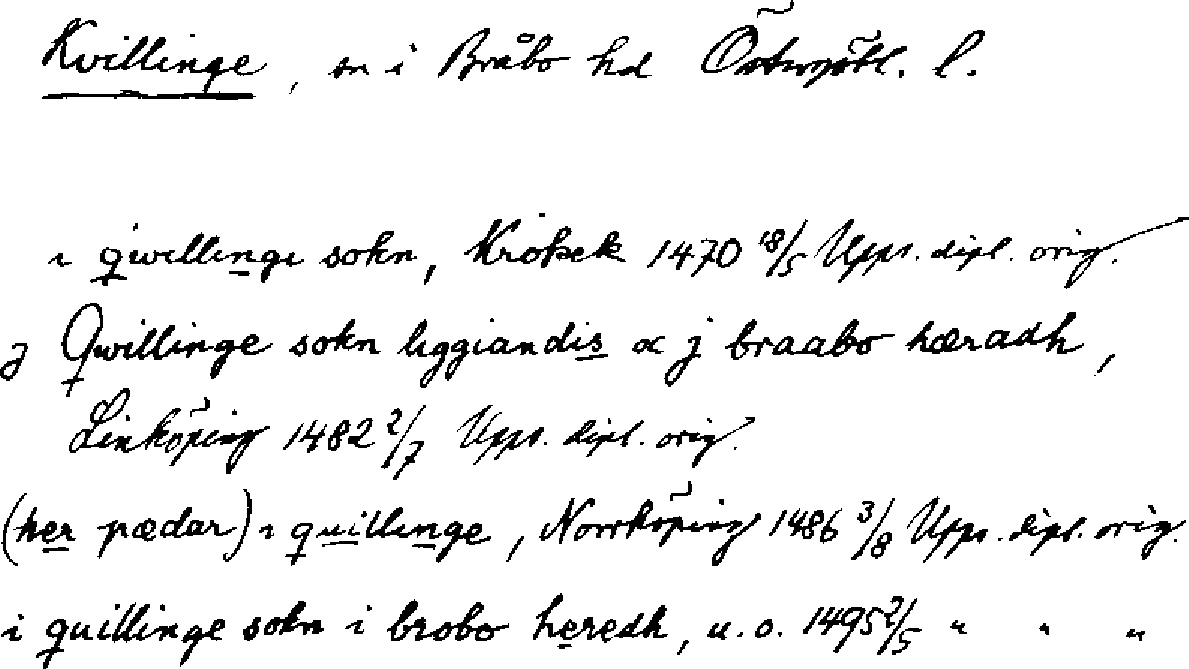 Kvillinge, sn i Bråbo hd Östergötl. l.
i qwillingi sokn, Krokek 1470 18/5 Upps. dipl. orig.
j Qwillinge sokn liggiandis æ j braabo hæradh,
Linköping 1482 2/7 Upps. dipl. orig.
(her pædar) i quillinge, Norrköping 1486 3/8 Upps. dipl. orig.
i quillinge sokn i brobo heredh, u.o. 1495 2/5 " " "